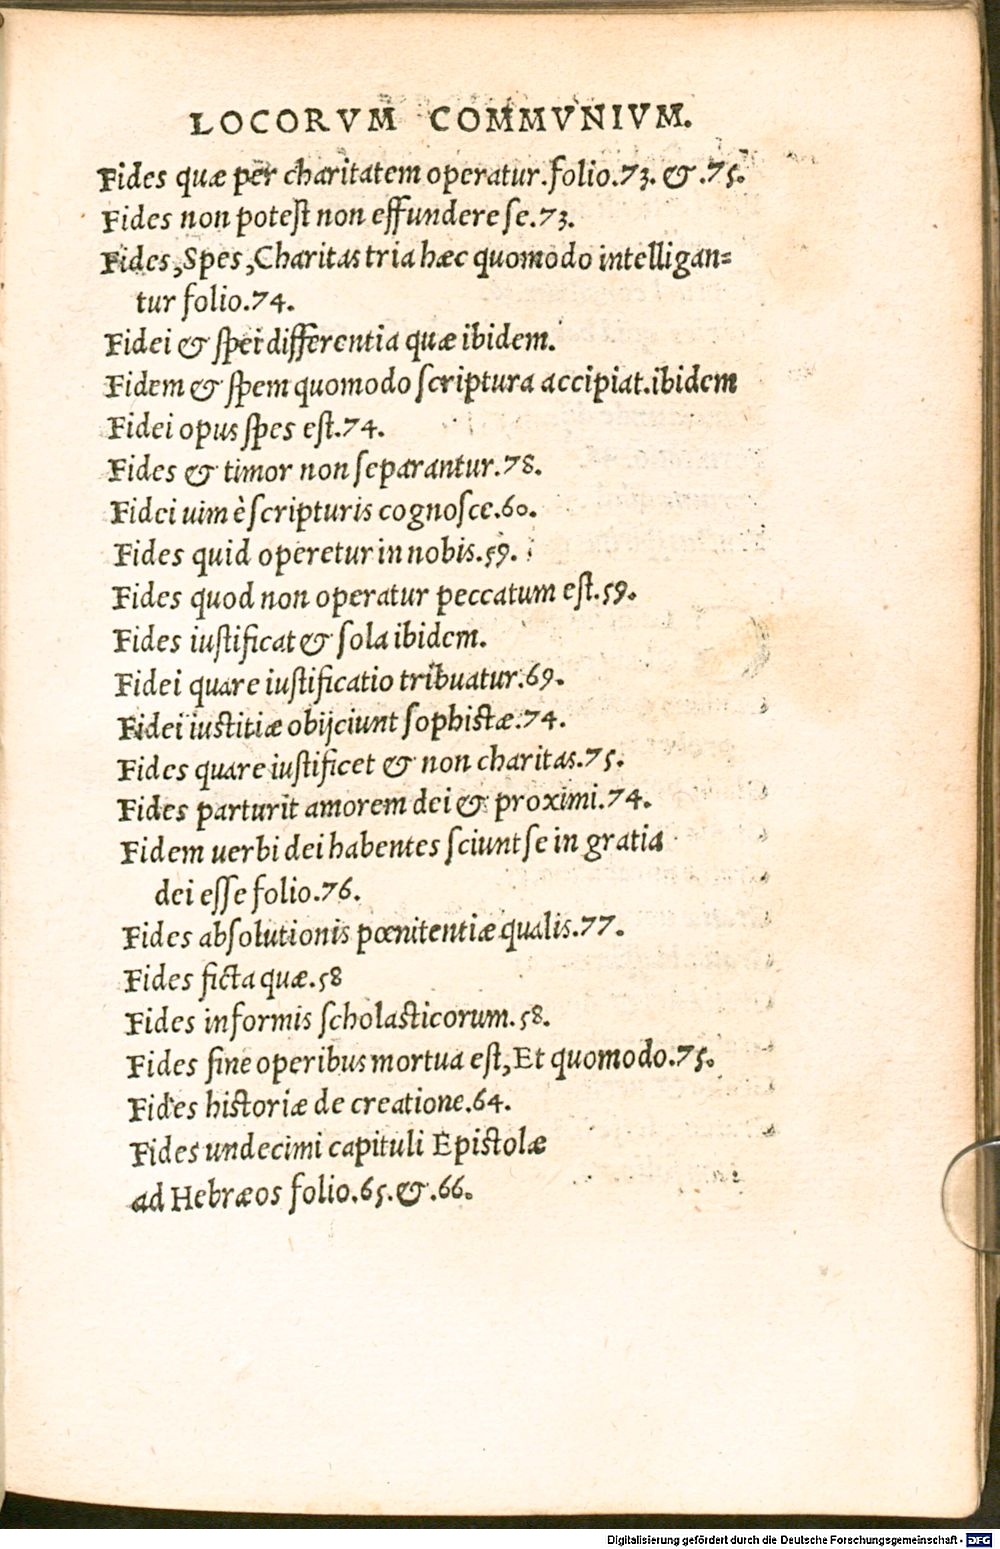 LOCORVM COMMVNIVM.
Fides quæ per charitatem operatur.folio.73. & .75.
Fides non potest non effundere se.73.
Fides,Spes,Charitas tria hæc quomodo intelligan=
tur folio.74.
Fidei & spei differentia quæ ibidem.
Fidem & spem quomodo scriptura accipiat.ibidem
Fidei opus spes est.74.
Fides & timor non separantur.78.
Fidei uim è scripturis cognosce.60.
Fides quid operetur in nobis.59.
Fides quod non operatur peccatum est.59.
Fides iustificat & sola ibidem.
Fidei quare iustificatio tribuatur.69.
Fidei iustitiæ obijciunt sophistæ.74.
Fides quare iustificet & non charitas.75.
Fides parturit amorem dei & proximi.74.
Fidem uerbi dei habentes sciunt se in gratia
dei esse folio.76.
Fides absolutionis pœnitentiæ qualis.77.
Fides ficta quæ.58
Fides informis scholasticorum.58.
Fides sine operibus mortua est,Et quomodo.75.
Fides historiæ de creatione.64.
Fides undecimi capituli Epistolæ
ad Hebræos folio.65.& .66.
Digitalisierung gefördert durch die Deutsche Forschungsgemeinschaft - DFG